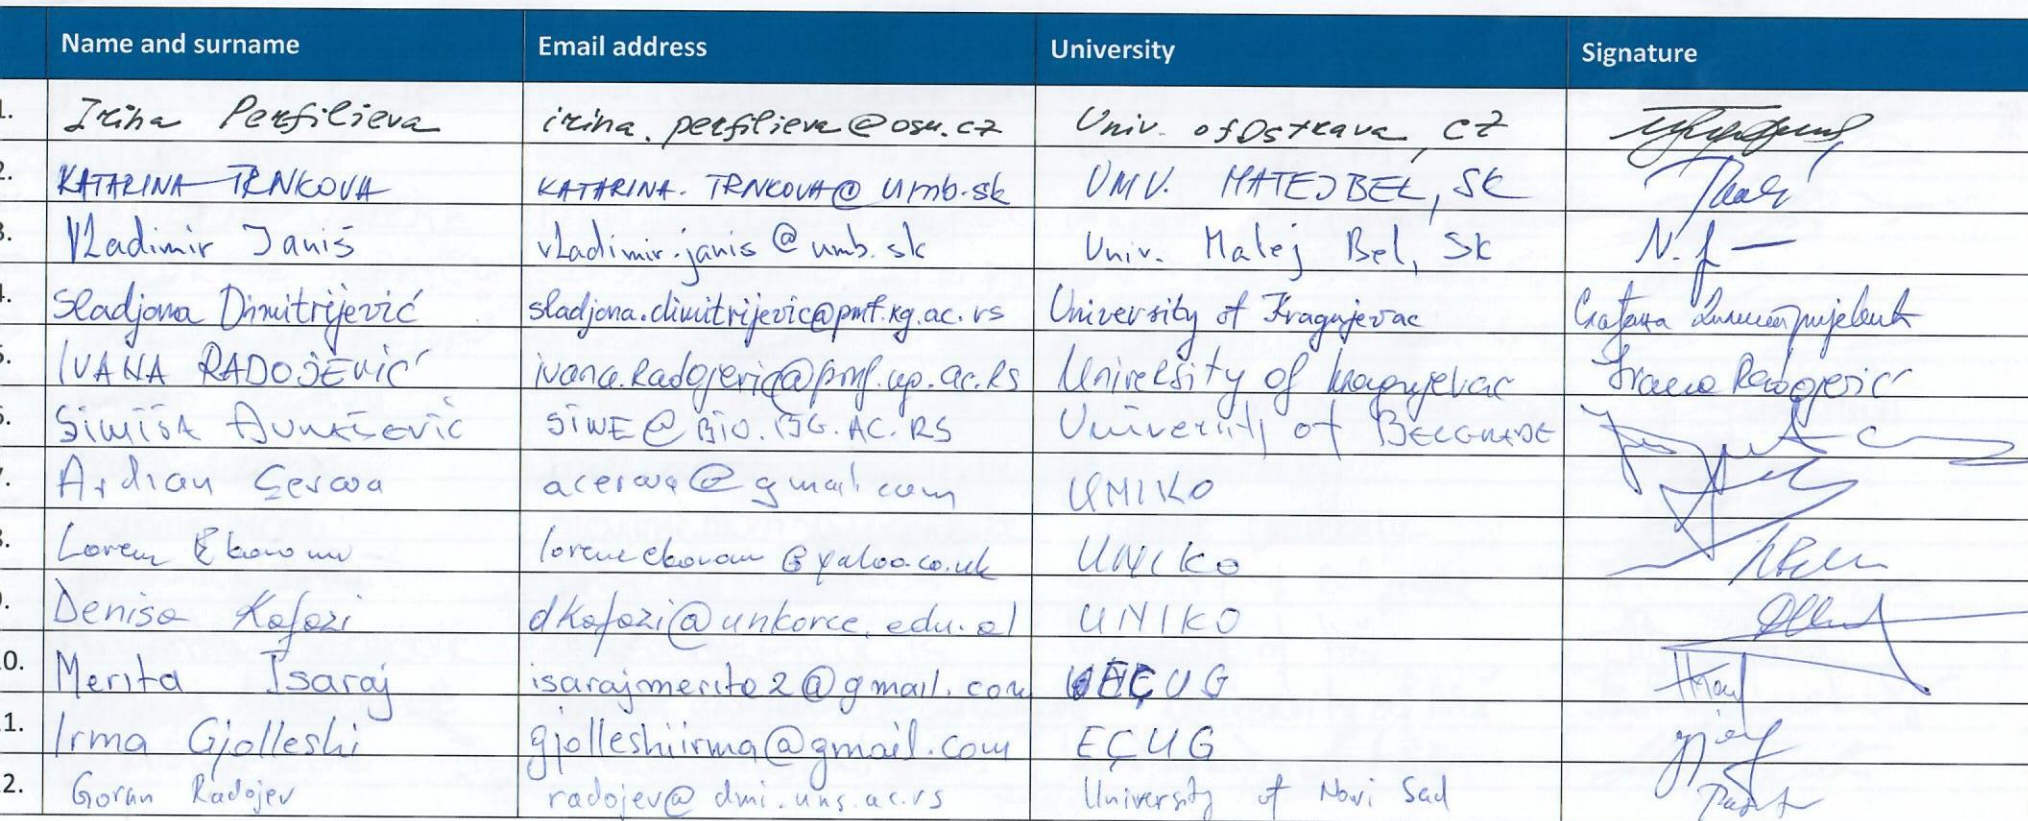 Name and surname Email address University Signature
1. Irina Perfilieva irina.perfilieva@osu.cz Univ. of Ostrava, CZ
2. KATARINA TRNKOVA KATARINA.TRNKOVA@umb.sk UNIV. MATEJ BEL, SK
3. Vladimir Janiš vladimir.janis@umb.sk Univ. Matej Bel, SK
4. Sladjana Dimitrijević sladjana.dimitrijevic@pmf.kg.ac.rs University of Kragujevac Слађана Димитријевић
5. IVANA RADOJEVIĆ ivana.radojevic@pmf.kg.ac.rs University of Kragujevac Ivana Radojević
6. SiNiŠA SiNE@BIO.BG.AC.RS University of BELGRADE
7. Ardian Çerava acerava@gmail.com UNIKO
8. Lorenc Ekonomi @yahoo.co.uk UNIKO
9. Denisa Kafazi dkafazi@unkorce.edu.al UNIKO
10. Merita Isaraj isarajmerita2@gmail.com ECUG
11. Irma Gjolleshi gjolleshiirma@gmail.com EÇUG
12. Goran Radojev radojev@dmi.uns.ac.rs University of Novi Sad